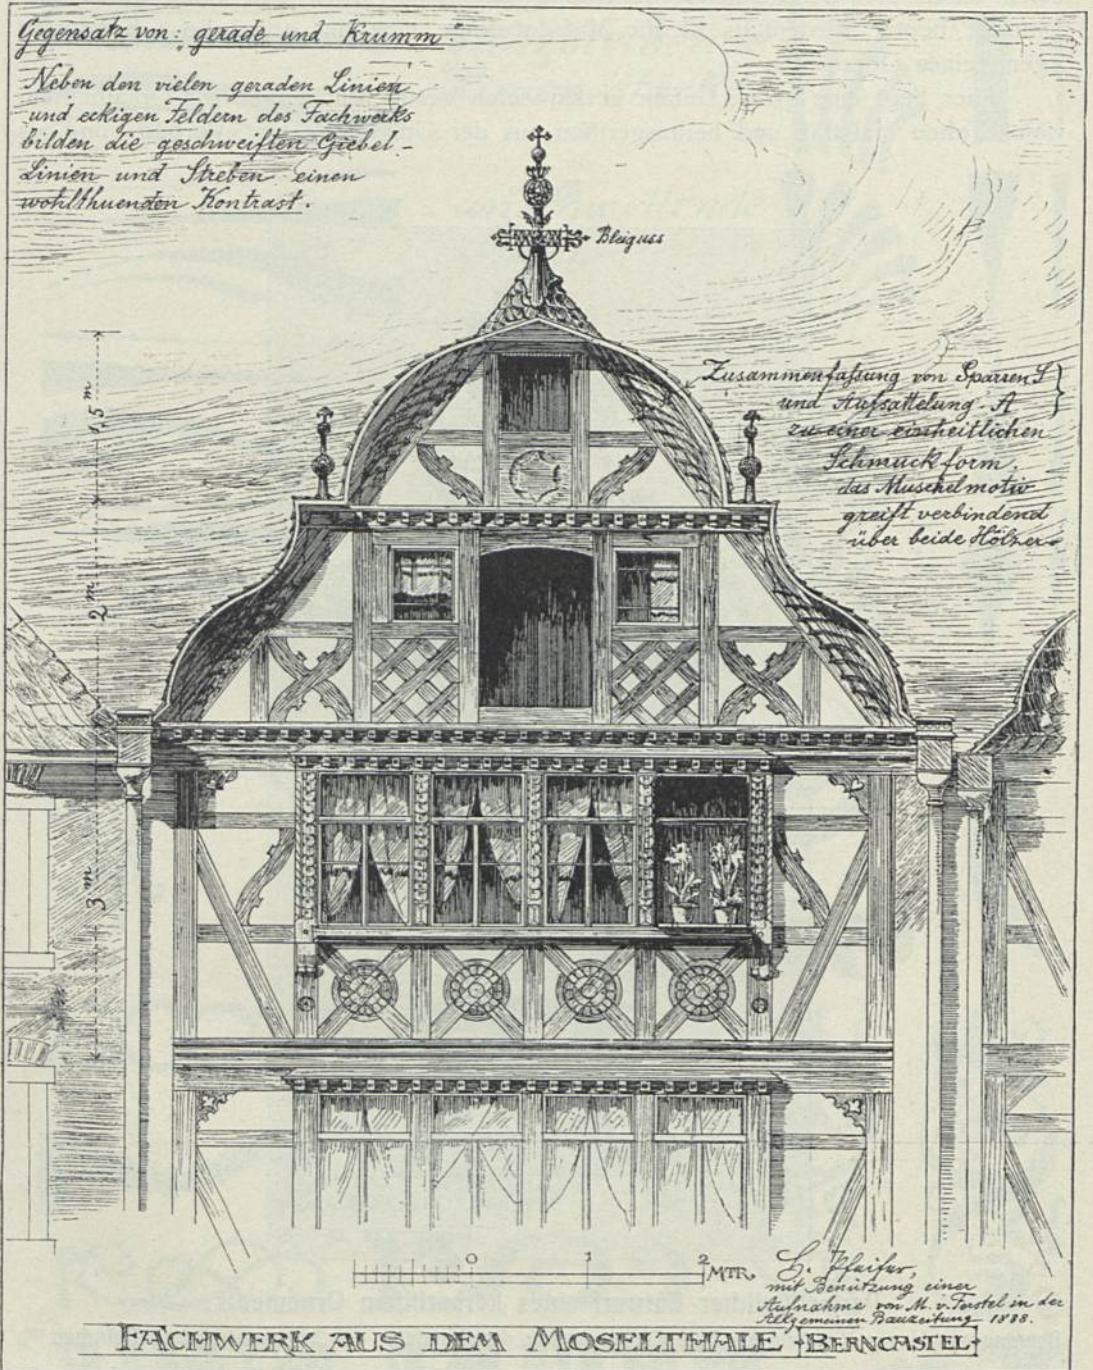 Gegensatz von: "gerade und Krumm."
Neben den vielen geraden Linien
und eckigen Feldern des Fachwerks
bilden die geschweiften Giebel-
Linien und Streben einen
wohlthuenden Kontrast.
Bleiguss
Zusammenfaßung von Sparren S
und Aufsattelung A
zu einer einheitlichen
Schmuckform.
das Muschelmotiv
greift verbindend
über beide Hölzer
1,5 m
2 m
3 m
0 1 2 MTR.
H. Pfeifer,
mit Benützung einer
Aufnahme von M. v. Ferstel in der
Allgemeinen Bauzeitung 1888.
FACHWERK AUS DEM MOSELTHALE BERNCASTEL